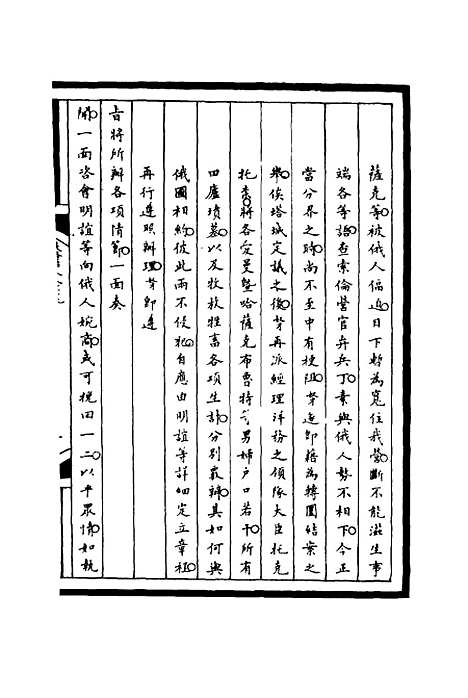 薩克等被俄人偪迫日下暫為寬住我營斷不能滋生事
端各等語查索倫營官弁兵丁素與俄人勢不相下今正
當分界之時尚不至中有梗阻等迤即籍為轉圜結案之
俟塔城定議之後等再派經理洋務之領隊大臣托克
托柰將各愛曼暨哈薩克布魯特等男婦戶口若干所有
田廬墳墓以及牧放牲畜各項生計分別嚴辦其如何與
俄國相約彼此兩不侵犯自應由明誼等詳細定立章程
再行遵照辦理等即遵
旨將所辦各項情節一面奏
聞一面咨會明誼等向俄人婉商或可挽回一二以平眾情如執